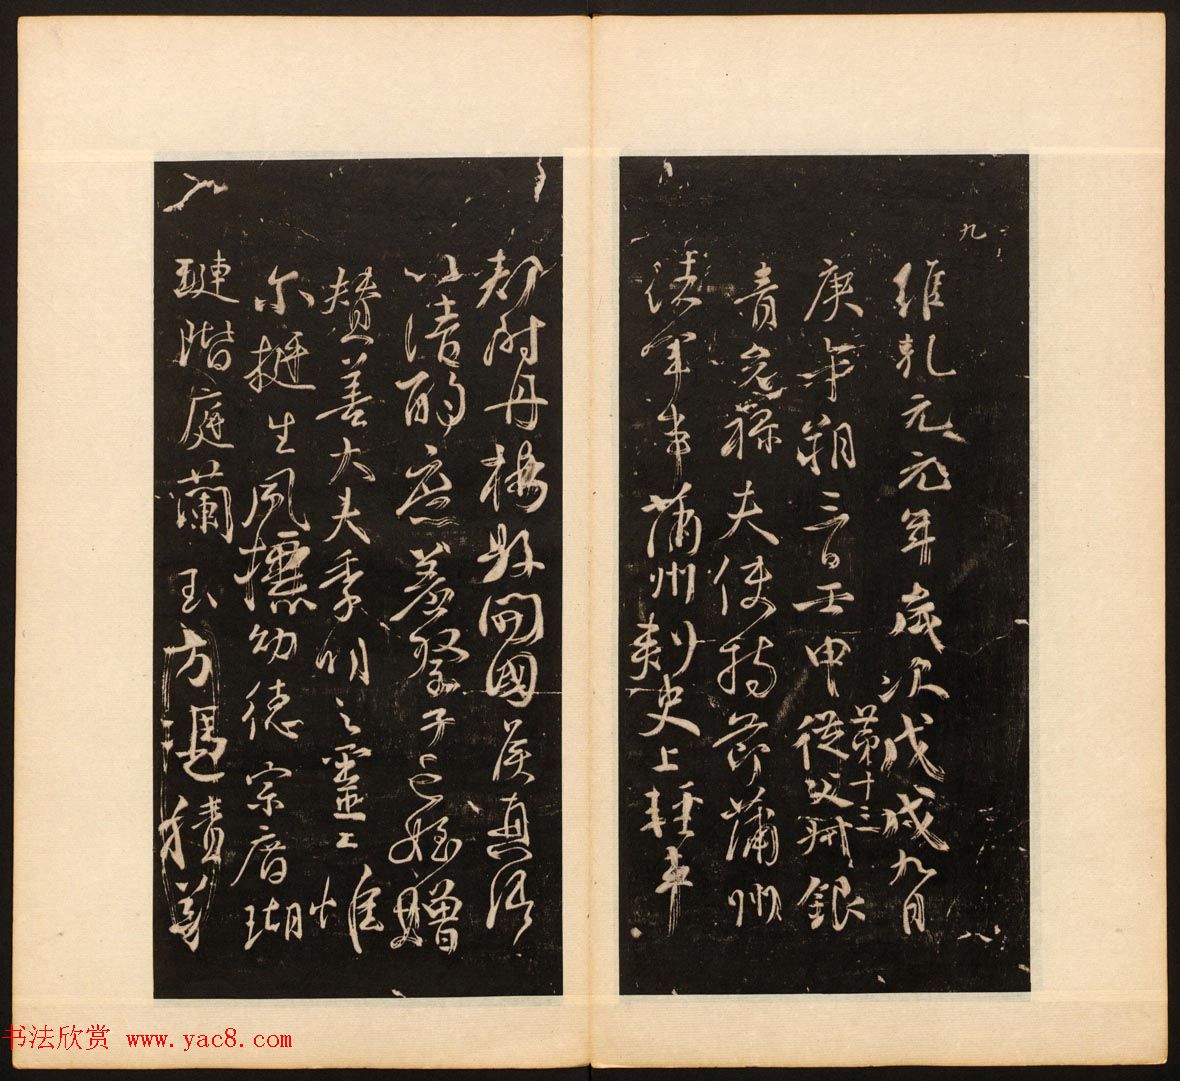 九
維乾元元年歲次戊戌九月
庚午朔三日壬申從父叔銀
第十三
青光祿夫使持節蒲州
諸軍事蒲州刺史上輕車
都尉丹楊縣開國侯真卿
以清酌庶羞祭于亡姪贈
贊善大夫季明之靈曰惟
尔挺生夙標幼德宗廟瑚
璉階庭蘭玉方憑積善
书法欣赏 www.yac8.com